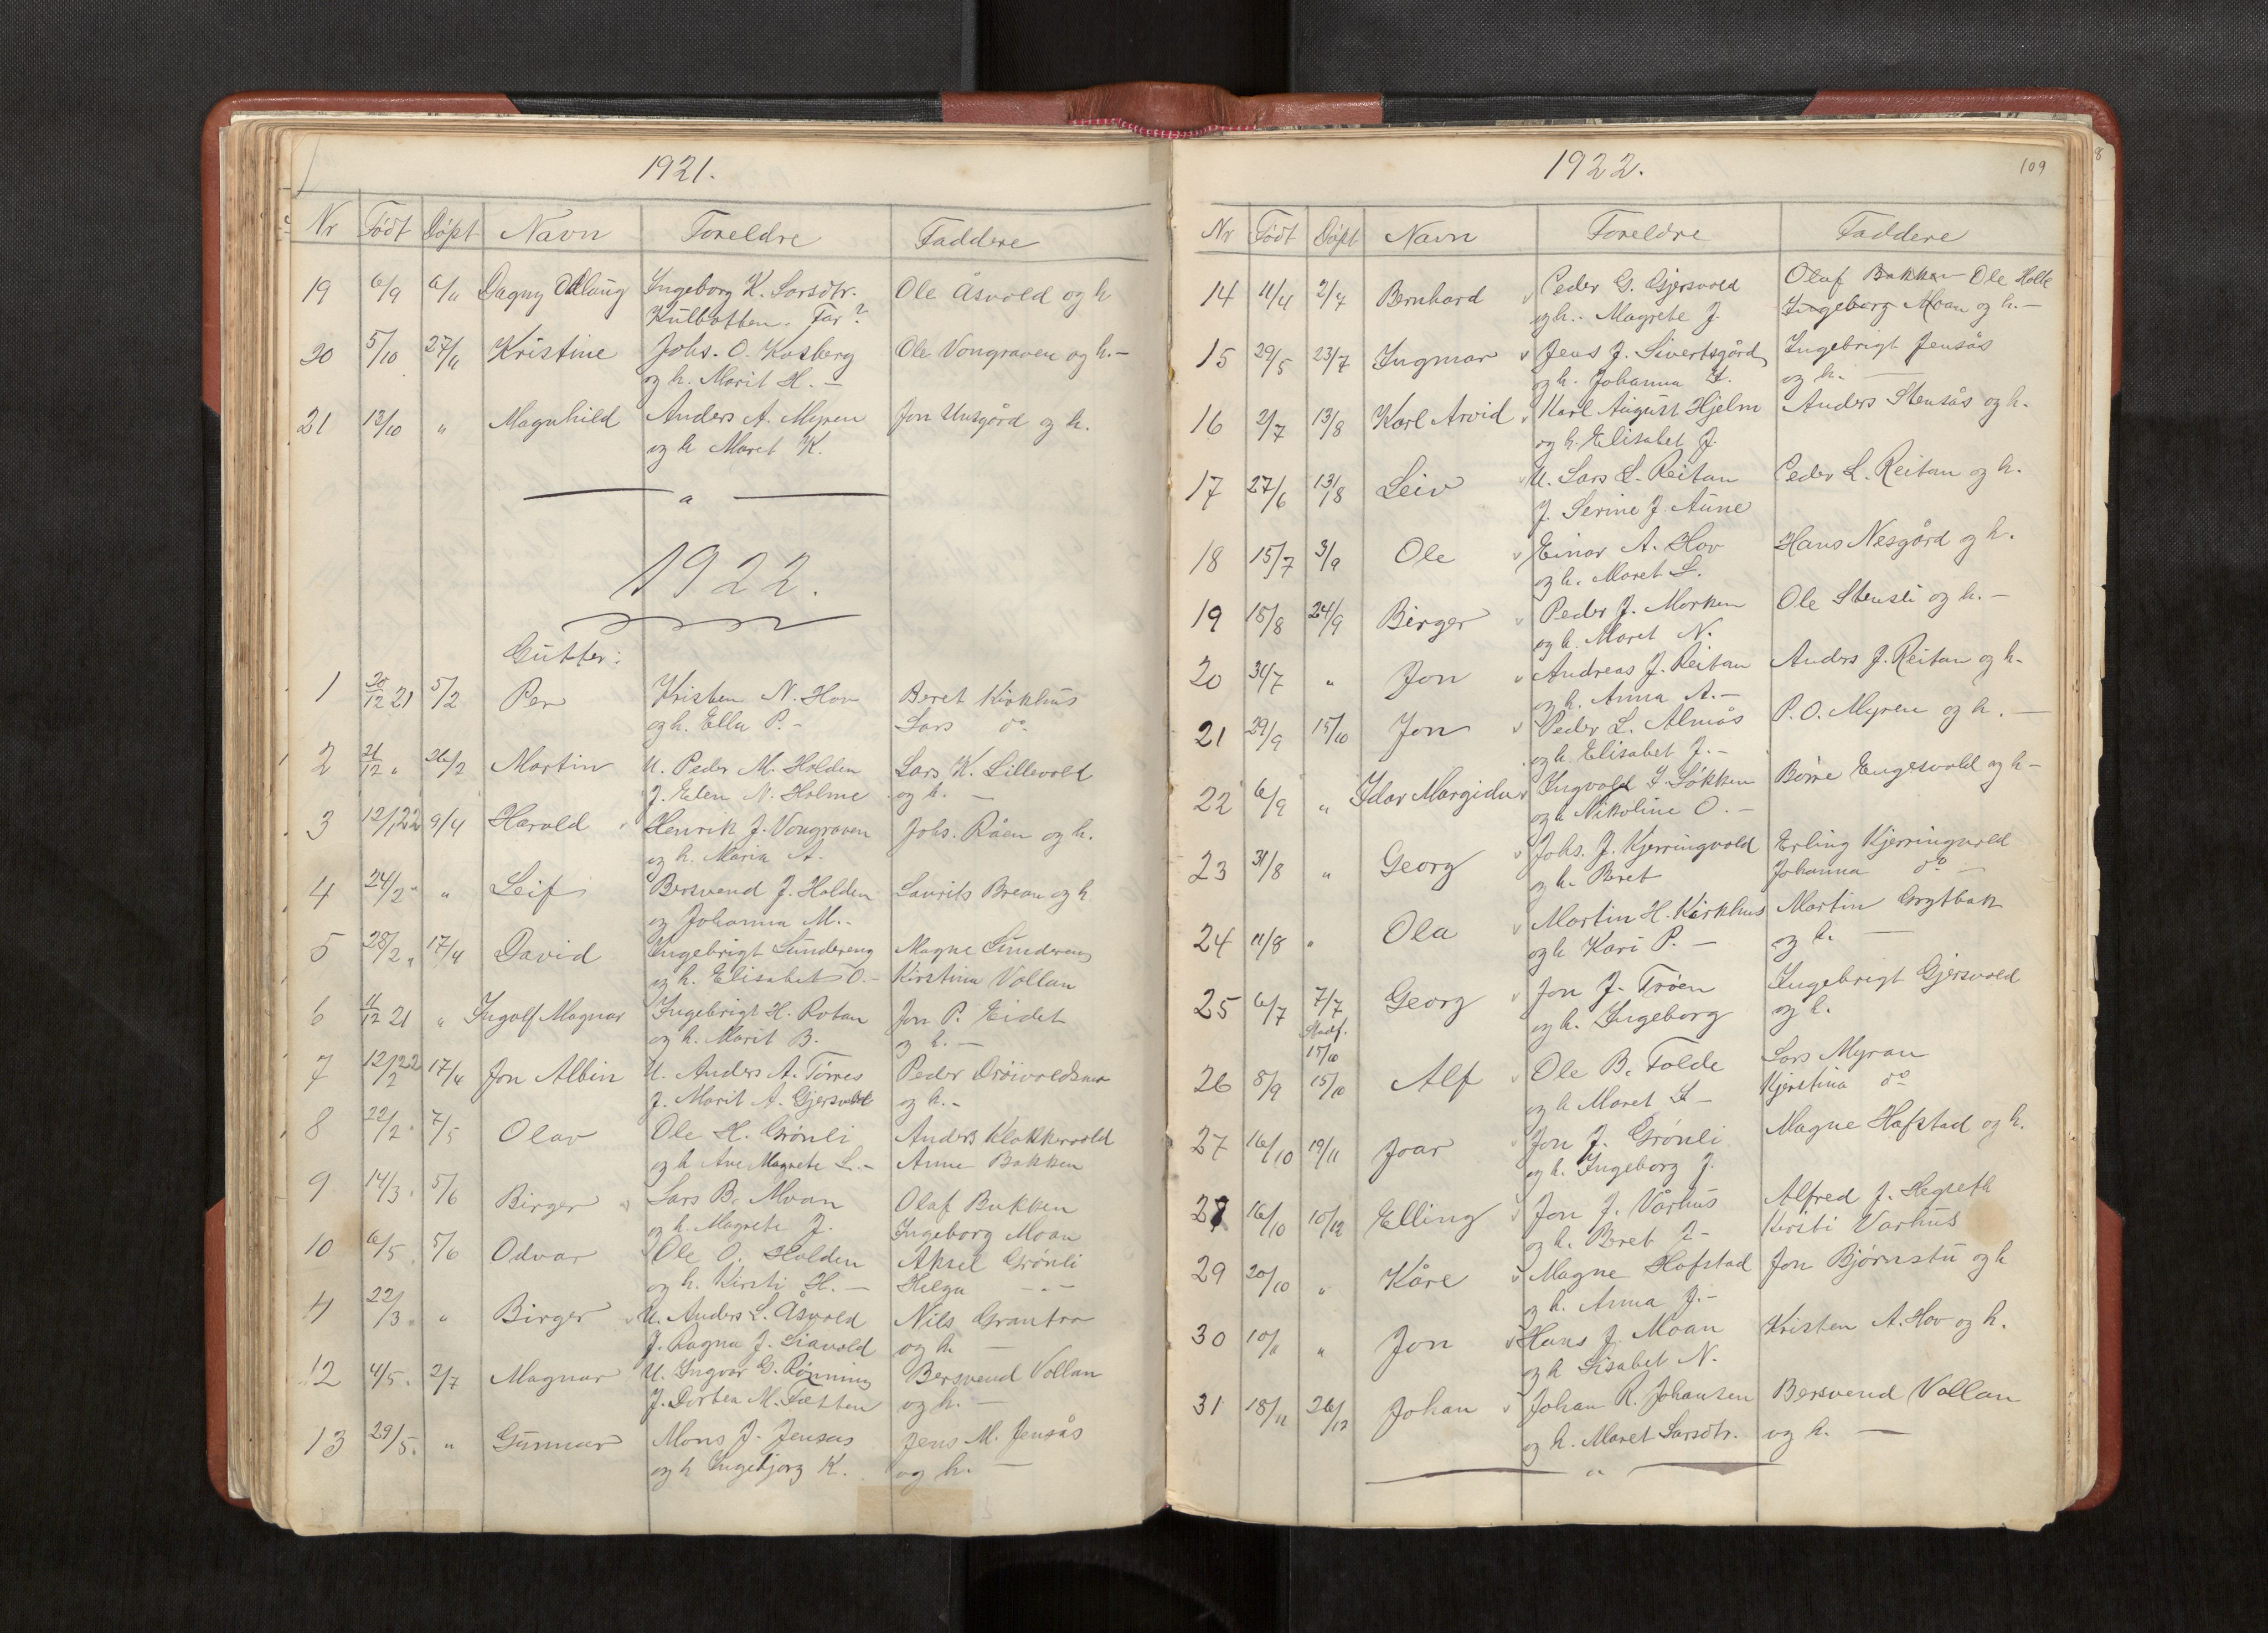 1921.
Nr Født Døpt Navn Foreldre Faddere
19 6/9 6/11 Dagny Ingeborg K. Larsdtr. Ole Åsvold og h
Kulbotten. Far?
20 5/10 27/11 Kristine Johs. O. Kosberg Ole Vongraven og h. -
og h. Marit H. -
21 13/10 " Magnhild Anders A. Myren Jon Unsgård og h.
og h Maret K.
1922.
Gutter:
1 20/12 21 5/2 Per Kristen N. Hov Beret Kirkhus
og h. Ella P. - Lars do
2 21/12 " 26/2 Martin U. Peder M. Holden Lars K. Lillevold
J. Elen N. Holme og h. -
3 12/1 22 9/4 Harold Henrik J. Vongraven Johs. Råen og h.
og h. Maria A.
4 24/2 " " Leif Bersvend J. Holden Laurits Brean og h
og Johanna M. -
5 28/2 " 17/4 David Ingebrigt Sundereng Magne Sundereng
og h. Elisabet O. - Kirstina Vollan
6 11/12 21 " Ingolf Magnar Ingebrigt H. Rotan Jon P. Eidet
og h. Marit B. og h. -
7 12/2 22 17/4 Jon Albin U. Anders A. Tørres Peder Drøivoldsmo
J. Marit A. Gjersvold og h. -
8 22/2 " 7/5 Olav Ole H. Grønli Anders Klokkervold
og h Ane Magrete L. - Anne Bakken
9 14/3 " 5/6 Birger Lars B. Moan Olaf Bakken
og h. Magrete J. Ingeborg Moan
10 6/5 " 5/6 Odvar Ole O. Holden Aksel Grønli
og h. Kirsti H. - Helga - " -
11 22/3 " " Birger U. Anders L. Åsvold Nils Grantro
J. Ragna J. Liavold og h. -
12 4/5 " 2/7 Magnar U. Ingvar G. Rønning Bersvend Vollan
J. Dortea M. Tetten og h. -
13 29/5 " " Gunnar Mons J. Jensås Jens M. Jensås
og h Ingebjorg K. og h. -
1922.
109
8
Nr Født Døpt Navn Foreldre Faddere
14 11/4 2/7 Bernhard Peder G. Gjersvold Olaf Bakken Ole Holte
og h. Magrete J. Ingeborg Moan og h. -
15 29/5 23/7 Ingmar Jens J. Sivertsgård Ingebrigt Jensås
og h. Johanna I. og h. -
16 2/7 13/8 Karl Arvid Karl August Hjelm Anders Stensås og h.
og h. Elisabet J.
17 27/6 13/8 Leiv U. Lars L. Reitan Peder L. Reitan og h.
J. Serine J. Aune
18 15/7 3/9 Ole Einar A. Hov Hans Nesgård og h.
og h. Maret L.
19 15/8 24/9 Birger Peder J. Morken Ole Stensli og h. -
og h. Maret N.
20 30/7 " Jon Andreas J. Reitan Anders J. Reitan og h.
og h. Anna A. -
21 29/9 15/10 Jon Peder L. Almås P. O. Myren og h. -
og h. Elisabet J. -
22 6/9 " Idar Margidu Ingvald I. Løkken Børre Engesvold og h -
og h Nikoline O. -
23 31/8 " Georg Johs. J. Kjerringvold Erling Kjerringvold
og h. Beret Johanna do -
24 11/8 " Ola Martin H. Kirkhus Martin Grytbak
og h Kari P. - og h. -
25 6/7 7/7 Georg Jon J. Trøen Ingebrigt Gjersvold
Stadf. og h. Ingeborg og h.
15/10
26 8/9 15/10 Alf Ole B. Folde Lars Myran
og h Maret I - Kjerstina do
27 16/10 19/11 Joar Jon J. Grønli Magne Hafstad og h.
og h. Ingeborg J.
28 16/10 10/12 Elling Jon J. Vårhus Alfred J. Hegseth
og h. Beret J - Kirsti Varhus
29 20/10 " Kåre Magne Hafstad Jon Bjørnstu og h
og h. Anna J. -
30 10/11 " Jon Hans J. Moan Kristen A. Hov og h.
og h Lisabet N.
31 18/11 26/12 Johan Johan R. Johansen Bersvend Vollan
og h. Maret Larsdtr. og h. -